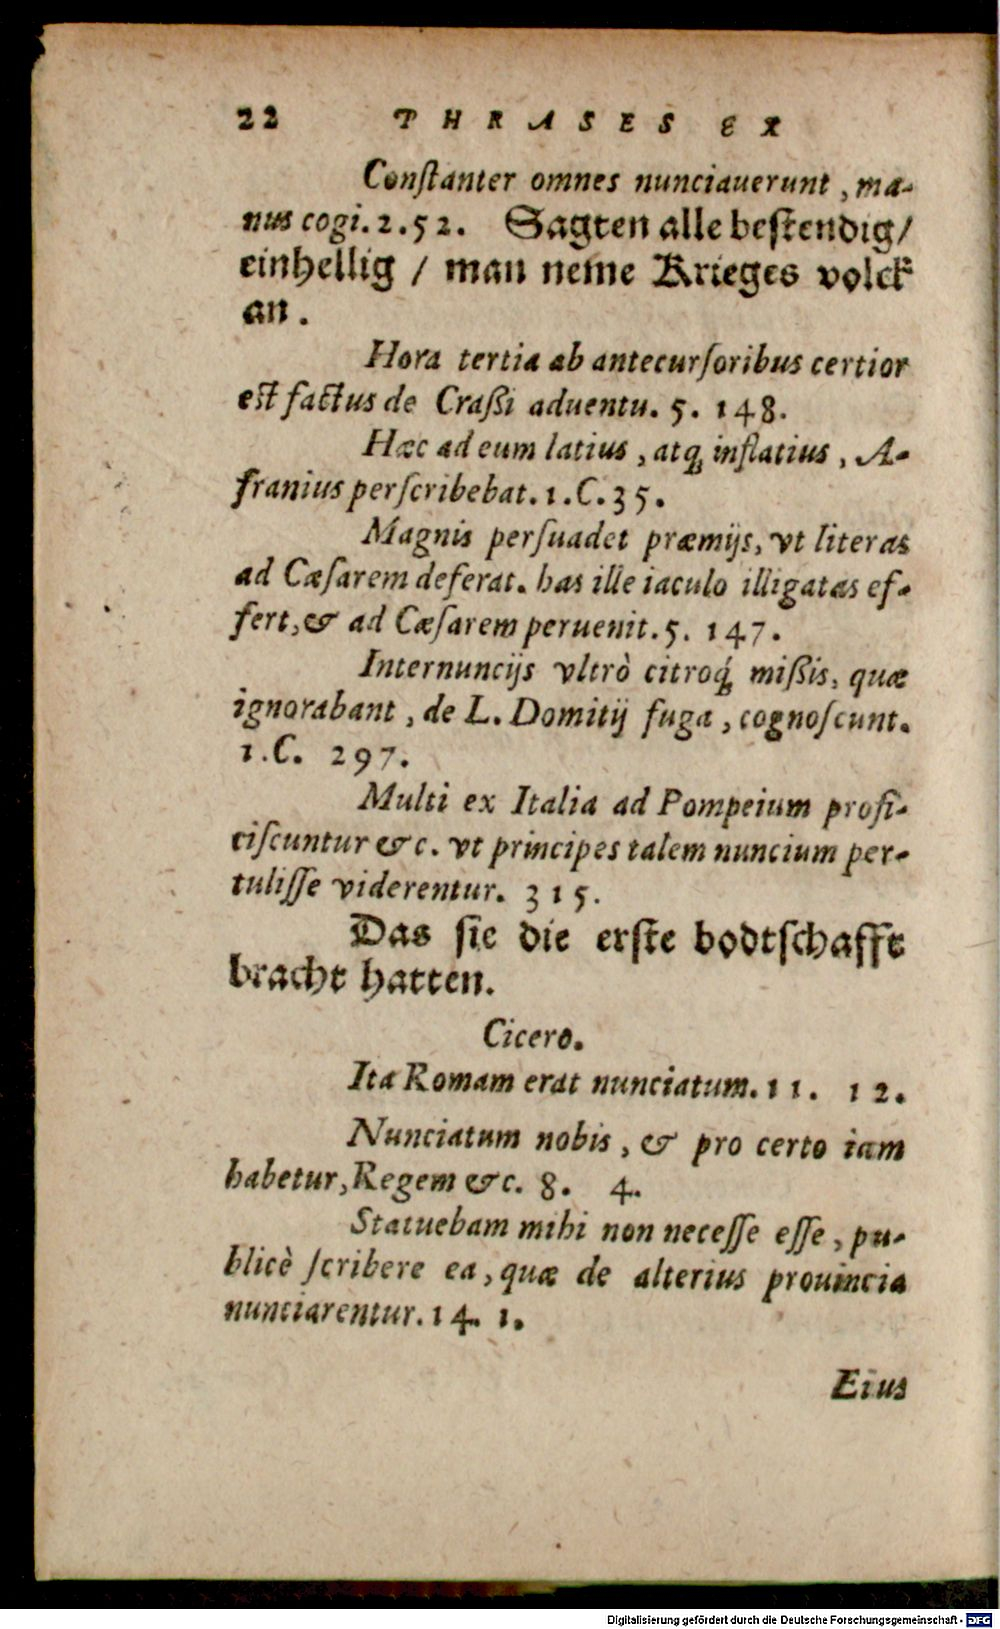 22 THRASES EX
Conſtanter omnes nunciauerunt, ma-
nus cogi. 2. 52. Sagten alle beſtendig/
einhellig / man neme Krieges volck
an.
Hora tertia ab antecurſoribus certior
est factus de Craßi aduentu. 5. 148.
Hæc ad eum latius, atq; inflatius, A-
franius perſcribebat. 1. C. 35.
Magnis perſuadet præmijs, vt literas
ad Cæſarem deferat. has ille iaculo illigatas ef-
fert, & ad Cæſarem peruenit. 5. 147.
Internuncijs vltrò citroq́; mißis, quæ
ignorabant, de L. Domitij fuga, cognoſcunt.
1. C. 297.
Multi ex Italia ad Pompeium profi-
ciſcuntur &c. vt principes talem nuncium per-
tuliſſe viderentur. 315.
Das ſie die erſte bodtſchafft
bracht hatten.
Cicero.
Ita Romam erat nunciatum. 11. 12.
Nunciatum nobis, & pro certo iam
habetur, Regem &c. 8. 4.
Statuebam mihi non neceſſe eſſe, pu-
blicè ſcribere ea, quæ de alterius prouincia
nunciarentur. 14. 1.
Eius
Digitalisierung gefördert durch die Deutsche Forschungsgemeinschaft - DFG